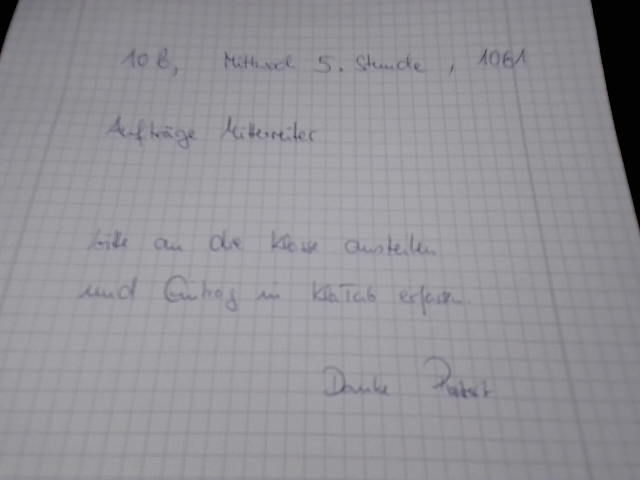 10 b, Mittwoch 5. Stunde, 1061
Aufträge Mitterreiter
bitte an die Klasse austeilen
und Eintrag in KlaTab erfassen.
Danke Pabst